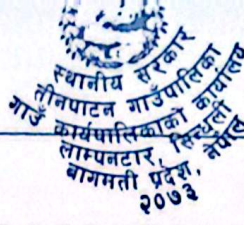 स्थानीय सरकार
तीनपाटन गाउँपालिका
गाउँ कार्यपालिकाको कार्यालय
लाम्पनटार, सिन्धुली
बागमती प्रदेश, नेपाल
२०७३